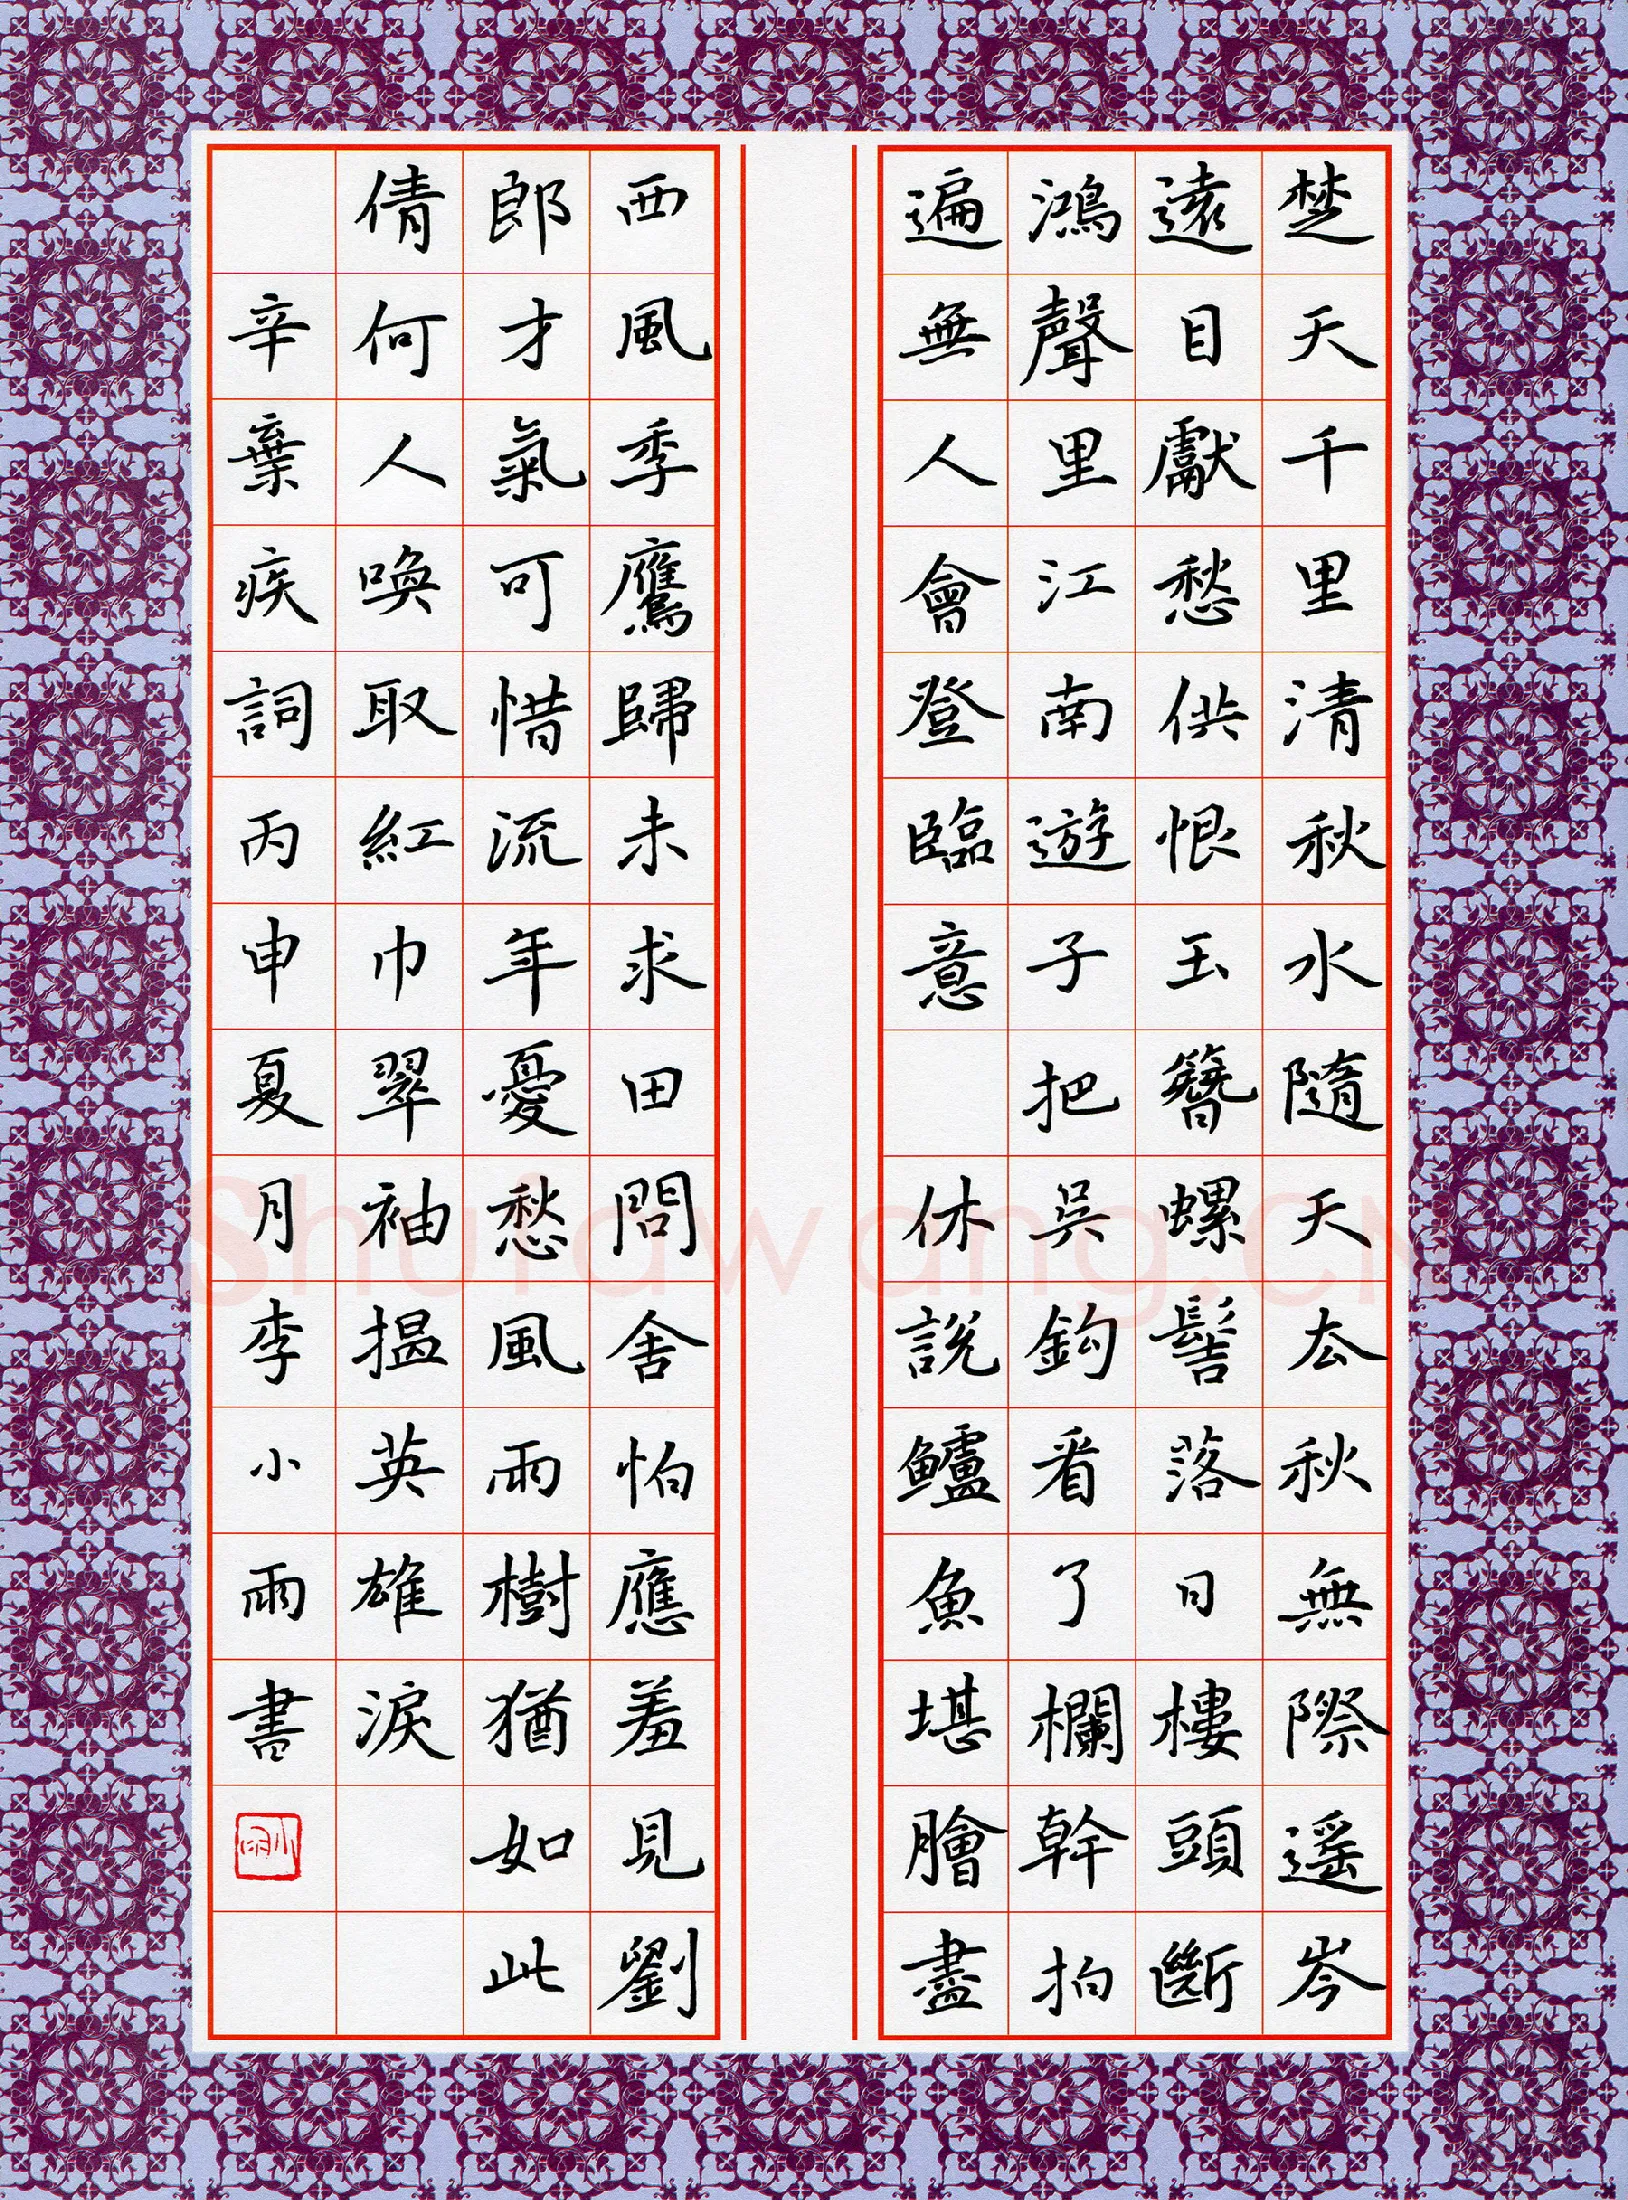 楚天千里清秋水隨天去秋無際遥岑
遠目獻愁供恨玉簪螺髻落日樓頭斷
鴻聲里江南遊子把吳鈎看了欄幹拍
遍無人會登臨意 休説鱸魚堪膾盡
西風季鷹歸未求田問舍怕應羞見劉
郎才氣可惜流年憂愁風雨樹猶如此
倩何人喚取紅巾翠袖揾英雄淚
辛棄疾詞丙申夏月李小雨書
小雨
Shufawang.CN